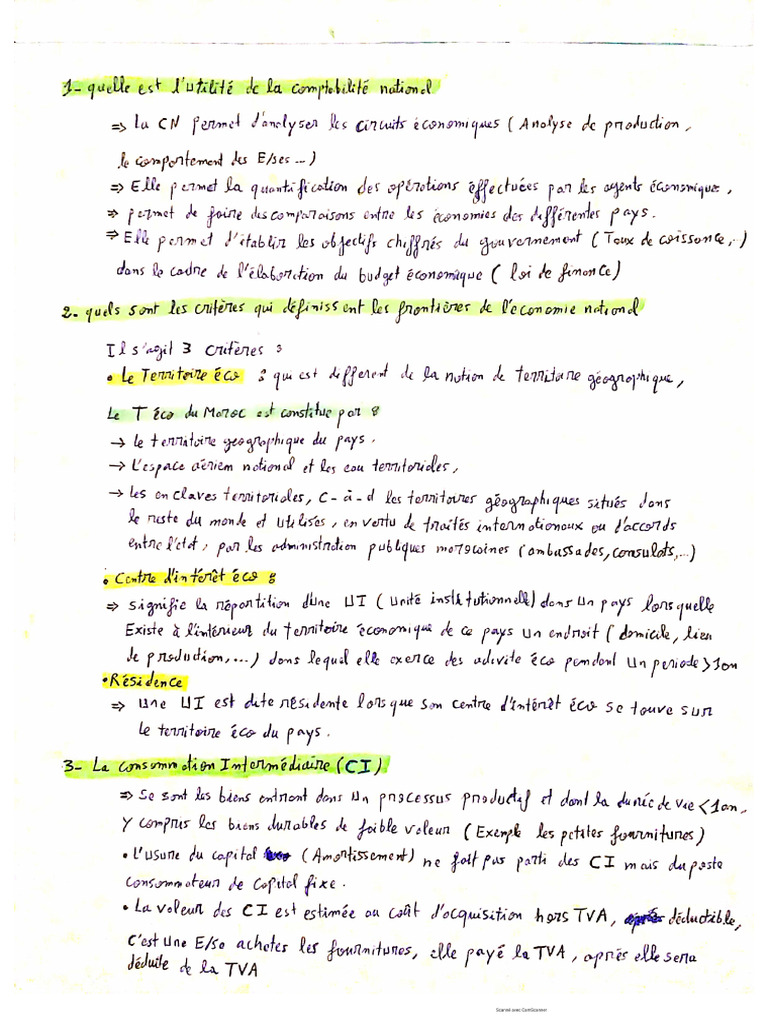 1- quelle est l'utilité de la comptabilité national
=> La CN permet d'analyser les circuits économiques ( Analyse de production,
le comportement des E/ses ...)
=> Elle permet la quantification des opérations effectuées par les agents économique,
=> permet de faire des comparaisons entre les économies des différentes pays.
=> Elle permet d'établir les objectifs chiffrés du gouvernement ( Taux de coissance,..)
dans le cadre de l'élaboration du budget économique ( loi de finance)
2- quels sont les critères qui définissent les frontières de l'économie national
Il s'agit 3 critères :
• Le Territoire éco : qui est different de la notion de territoire géographique,
Le T éco du Maroc est constitue par :
→ le territoire géographique du pays.
→ L'espace aériem national et les eau territoriales,
→ les enclaves territoriales, C-à-d les territoires géographiques situés dans
le reste du monde et utilisés, en vertu de traités internationaux ou d'accords
entre l'état, par les administration publiques marocaines (ambassades, consulats,...)
• Centre d'intérêt éco :
=> signifie la répartition d'une UI ( unité institutionnelle) dans un pays lorsquelle
Existe à l'intérieur du territoire économique de ce pays un endroit ( domicile, lieu
de production,...) dans lequel elle exerce des adivité éco pendant un periode > 1an
• Résidence
=> une UI est dite résidente lorsque son centre d'intérêt éco se touve sur
le territoire éco du pays.
3- La consommation Intermédiaire (CI)
=> Se sont les biens entrant dans un processus productif et dont la durée de vie < 1an,
y compris les biens durables de faible valeur ( Exemple les petites fournitures)
• L'usure du capital (Amortissement) ne fait pas parti des CI mais du poste
consommateur de capital fixe.
• La valeur des CI est estimée au coût d'acquisition hors TVA, déductible,
C'est une E/se achetes les fournitures, elle payé la TVA, après elle sera
déduite de la TVA
Scanné avec CamScanner